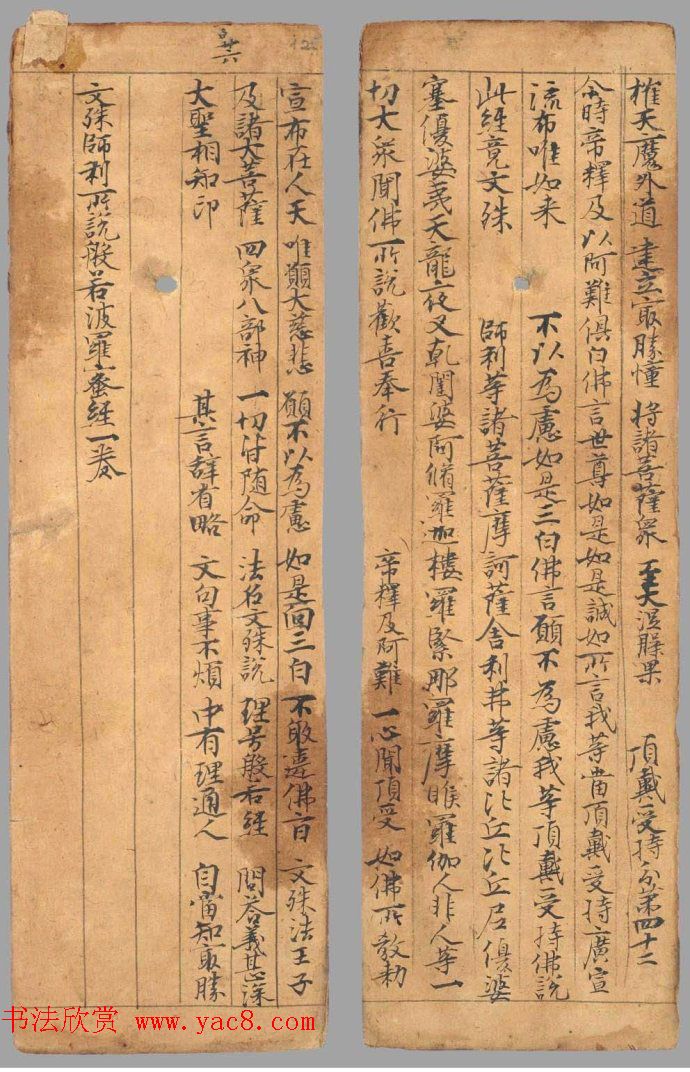 摧天魔外道 建立寂勝幢 將諸菩薩衆 至大涅槃果 頂戴受持分第四十二
尒時帝釋及以阿難俱白佛言世尊如是如是誠如所言我等當頂戴受持廣宣
流布唯如来 不以為慮如是三白佛言願不為慮我等頂戴受持佛說
此經竟文殊 師利等諸菩薩摩訶薩舍利弗等諸比丘比丘尼優婆
塞優婆夷天龍夜叉乾闥婆阿脩羅迦樓羅緊那羅摩睺羅伽人非人等一
切大衆聞佛所說歡喜奉行 帝釋及阿難 一心聞頂受 如佛所教勅
宣布在人天 唯願大慈悲 願不以為慮 如是囬三白 不敢違佛言 文殊法王子
及諸大菩薩 四衆八部神 一切皆随命 法名文殊說 經号般若經 問荅義甚深
大聖相知印 其言辝省略 文句事不煩 中有理通人 自當知寂勝
文殊師利所說般若波羅蜜經一卷
书法欣赏 www.yac8.com